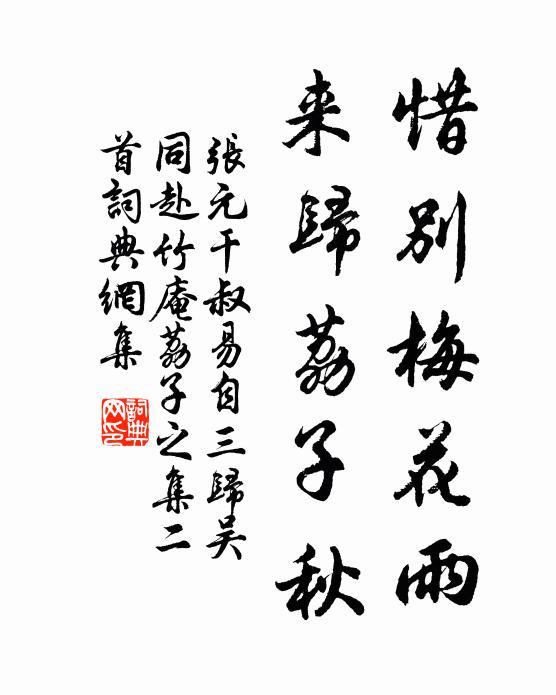 惜别梅花雨
来歸荔子秋
張元干叔易自三歸吴
同赴竹庵荔子之集二
首詞典網集
詞典網印